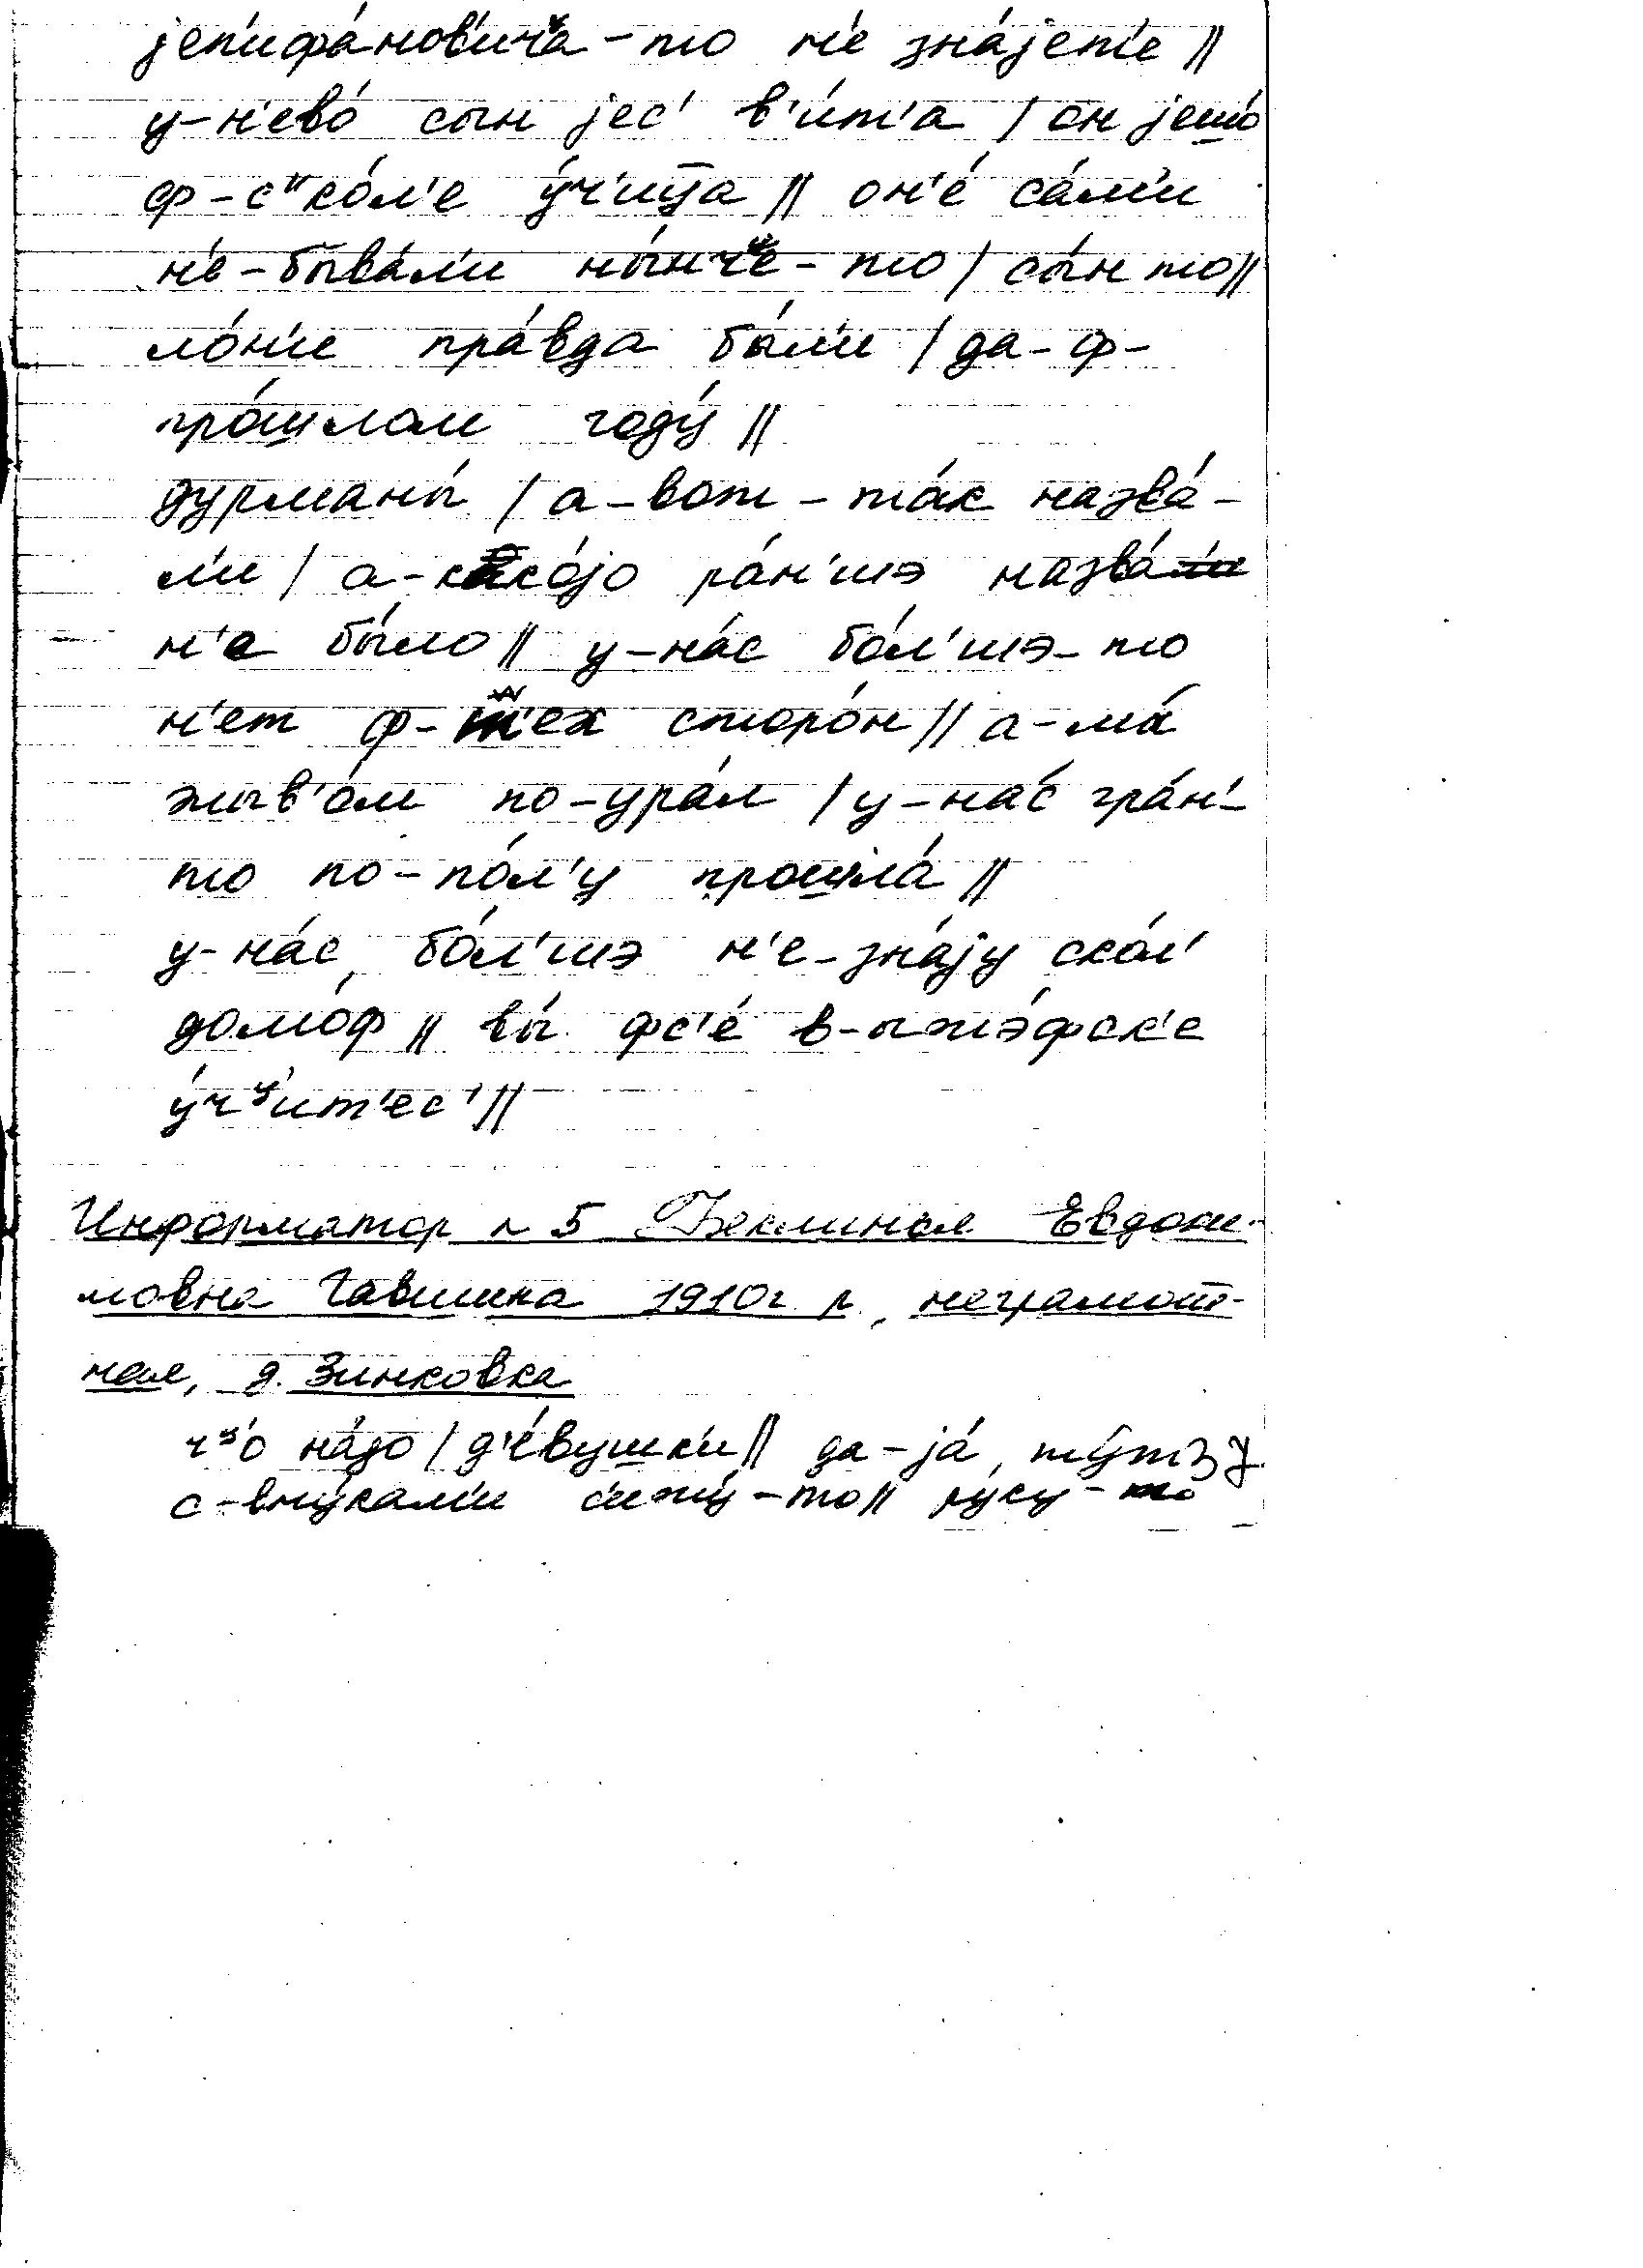 jеп'ифа́нов'ич'а-то н'е зна́jет'е ||
у-н'ево́ сын jес' в'и́т'а / он jешо́
ф-с"ко́л'е у́ч'иц̄а || он'е́ са́м'и
н'е-быва́л'и ны́нч'е-то / сы́н то ||
ло́н'и пра́вда бы́л'и / да-ф-
про́шлом году́ ||
дурманы́ / а-вот-та́к назва́-
л'и / а-како́jо ра́н'шэ назва́
н'е бы́ло || у-на́с бо́л'шэ-то
н'ет ф-т'ех сторо́н || а-мы́
жыв'о́м по-ура́л / у-на́с гра́н'-
то по-по́л'у прошла́ ||
у-на́с, бо́л'шэ н'е-зна́jу ско́л'
домо́ф || вы́ фс'е́ в-ыжэ́фск'е
у́ч<sup>ц'</sup>ит'ес' ||
Информатор № 5 Евдоки-
мовна 1910г. р., неграмот-
ная, д. Зинковка
ч<sup>ц'</sup>о на́до / д'е́вушк'и || да-jа́, ту́т
с-вну́кам'и с'ижу́-то || ру́ку-то